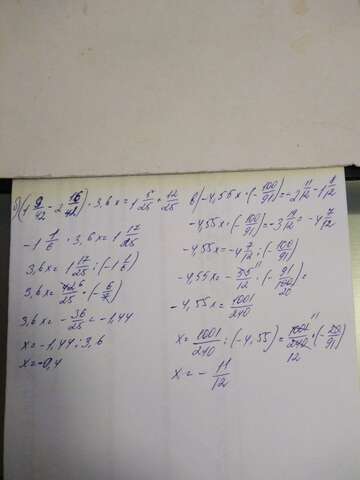 б) (1 9/42 - 2 16/42) · 3,6x = 1 5/25 + 12/25
-1 1/6 · 3,6x = 1 17/25
3,6x = 1 17/25 : (-1 1/6)
3,6x = 42/25 · (-6/7)
3,6x = -36/25 = -1,44
x = -1,44 : 3,6
x = -0,4
в) -4,55x · (-100/91) = -2 11/12 - 1 8/12
-4,55x · (-100/91) = -3 19/12 = -4 7/12
-4,55x = -4 7/12 : (-100/91)
-4,55x = -55/12 · (-91/100) =
-4,55x = 1001/240
x = 1001/240 : (-4,55) = 1001/240 · (-20/91)
x = -11/12